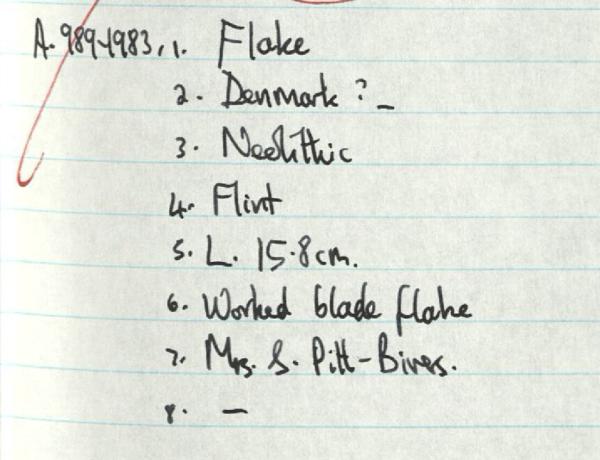 A. 989-1983, 1. Flake
2. Denmark ? -
3. Neolithic
4. Flint
5. L. 15.8 cm.
6. Worked blade flake
7. Mrs. S. Pitt-Rivers.
8. -